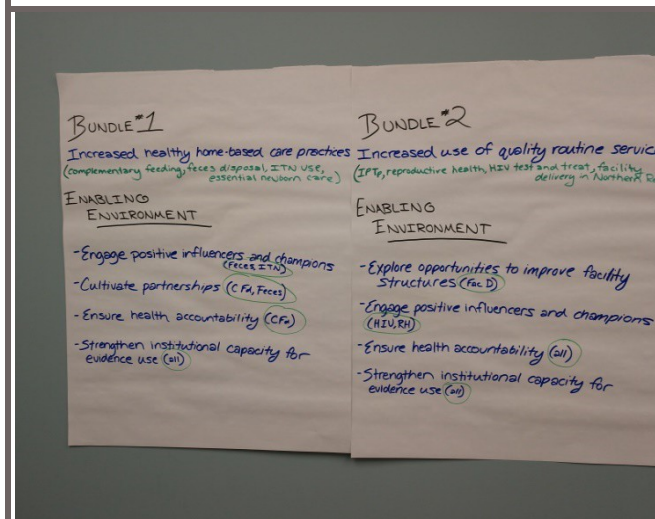 BUNDLE #1
Increased healthy home-based care practices
(complementary feeding, feces disposal, ITN use,
essential newborn care)
ENABLING
ENVIRONMENT
- Engage positive influencers and champions
(Feces ITN)
- Cultivate partnerships (CFd, Feces)
- Ensure health accountability (CFd)
- Strengthen institutional capacity for
evidence use (all)
BUNDLE #2
Increased use of quality routine servic
(IPTp, reproductive health, HIV test and treat, facility
delivery in Northern
ENABLING
ENVIRONMENT
- Explore opportunities to improve facility
structures (Fac D)
- Engage positive influencers and champions
(HIV, RH)
- Ensure health accountability (all)
- Strengthen institutional capacity for
evidence use (all)